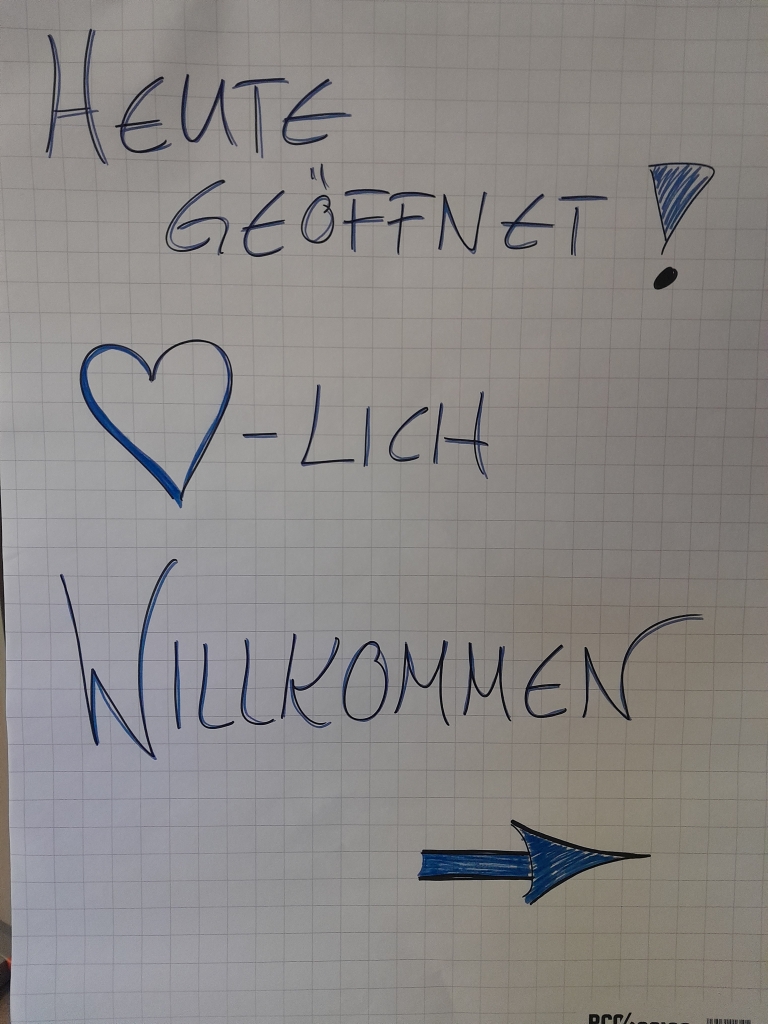 HEUTE
GEÖFFNET!
♡-LICH
WILLKOMMEN